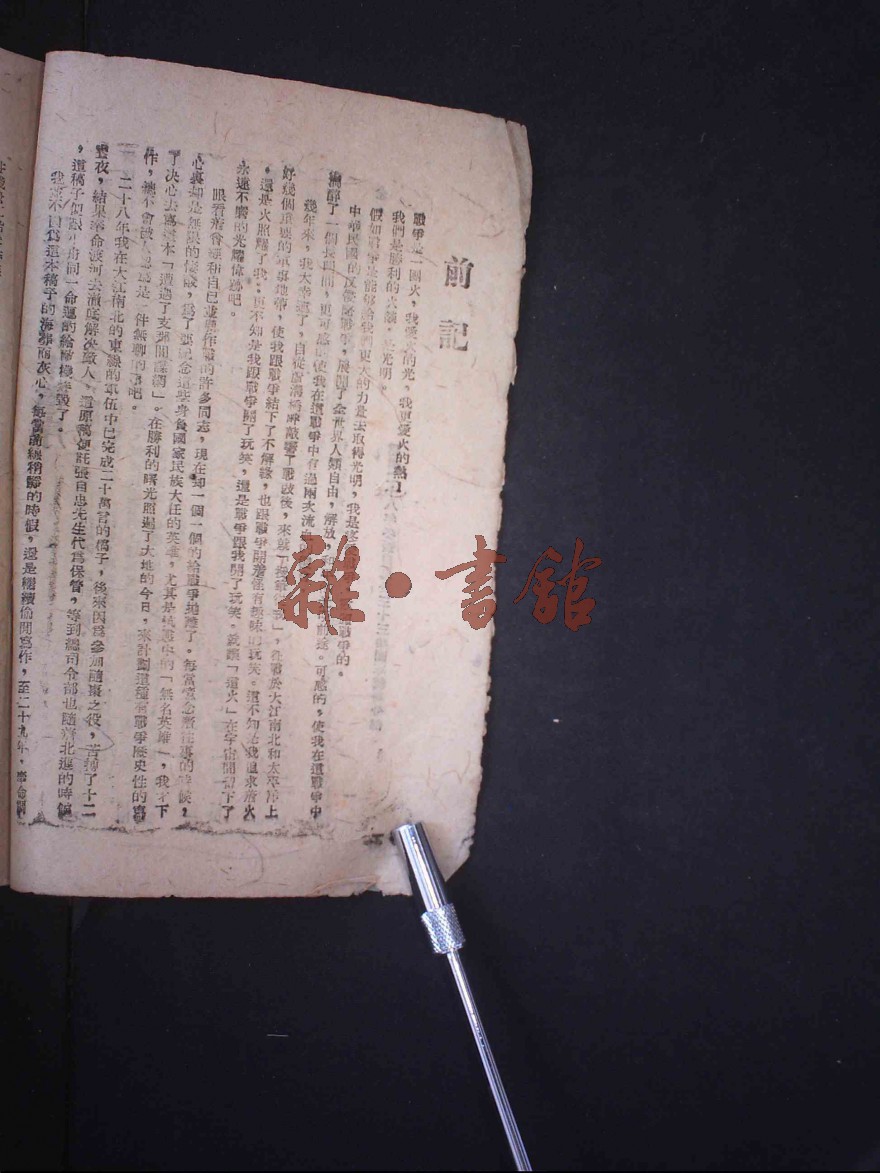 前記
戰爭是一團火，我愛火的光，我更愛火的熱！
我們是勝利的火燄，光明。
假如戰爭是能够給我們更大的力量去取得光明，我是
中華民國的反侵略戰爭，展開了全世界人類自由，解放，戰爭的。
了一個長時間，更可感的使我在這戰爭中有過兩次流，可感的，使我在這戰爭中
幾年來，我太幸運了，自從盧溝橋畔敲響了戰鼓後，來就，從戰於大江南北和太平洋上
好幾個重要的軍事地帶，使我跟戰爭結下了不解緣，也跟戰爭開着很有趣味的玩笑。這不知是我追求着火
，還是火照耀了我，更不知是我跟戰爭開了玩笑，還是戰爭跟我開了玩笑。說「這火」在宇宙間留下了
永遠不磨的光耀偉跡吧。
眼看着曾經和自己並肩作戰的許多同志，現在却一個一個的給戰爭地離了。每當懷念舊往事的時候，
心裏却是無限的悵惘，爲了要紀念這些身負國家民族大任的英雄，尤其是抗戰中的「無名英雄」，我才下
了決心去寫這本「遭遇了支那間諜網」。在勝利的曙光照遍了大地的今日，來計劃這種有戰爭歷史性的寫
作，總不會被人忽爲是一件無聊的事吧。
二十八年我在大江南北的東線的軍伍中已完成二十萬言的稿子，後來因爲參加隨棗之役，苦搏了十二
晝夜，結果奉命渡河去澈底解決敵人，這原稿便託張自忠先生代爲保管，等到總司令部也隨齊北進的時候
，這稿子便跟小舟同一命運的給砲燬毀了。
我並不因爲這本稿子的海葬而灰心，每當前線稍靜的時候，還是繼續偷閒寫作，至二十九年，奉命調
雜·書館